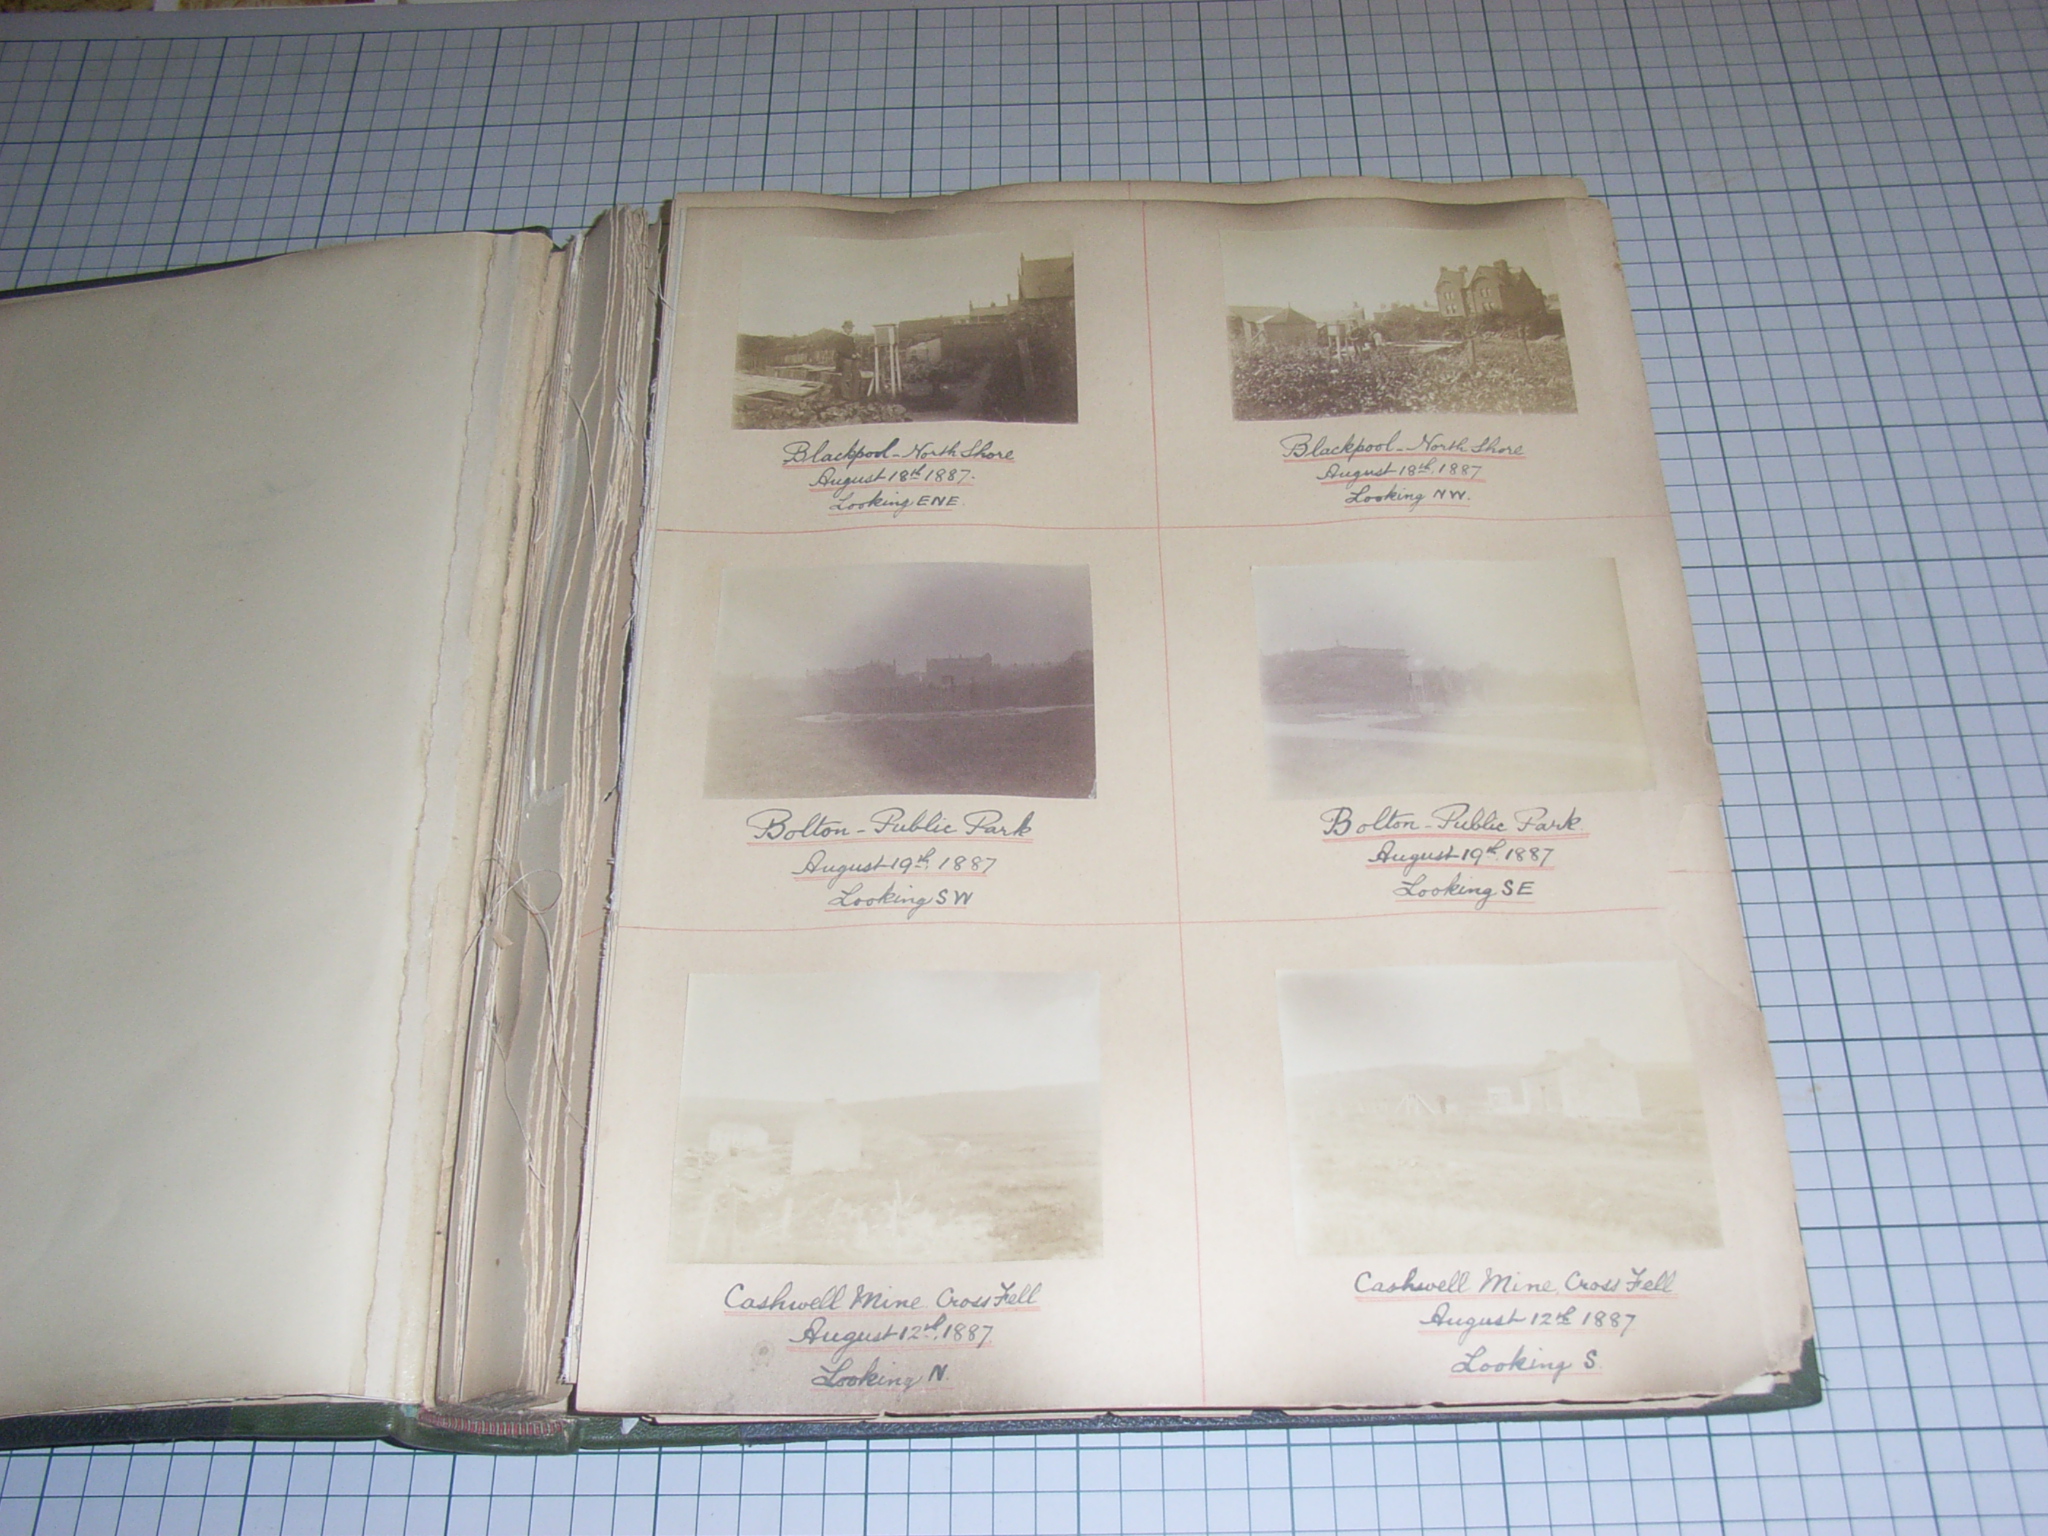 Blackpool - North Shore
August 18th 1887.
Looking ENE.
Blackpool - North Shore
August 18th, 1887
Looking NW.
Bolton - Public Park
August 19th, 1887
Looking SW
Bolton - Public Park.
August 19th, 1887
Looking SE
Cashwell Mine, Cross Fell
August 12th, 1887.
Looking N.
Cashwell Mine, Cross Fell
August 12th 1887
Looking S.